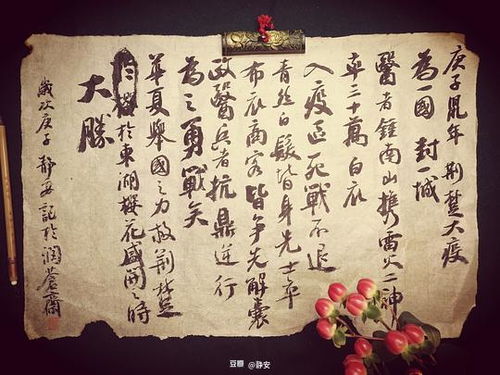 庚子鼠年 荆楚大疫
为一國 封一城
醫者鍾南山携雷火二神
率三十萬白衣
入疫區死戰不退
青丝白髮皆身先士卒
布衣商客皆争先解囊
政醫兵者抗鼎逆行
為之勇戰矣
華夏舉國之力救荆楚
於東湖櫻花盛開之時
大勝
歲次庚子 静安記於润蒼齋
豆瓣 @静安